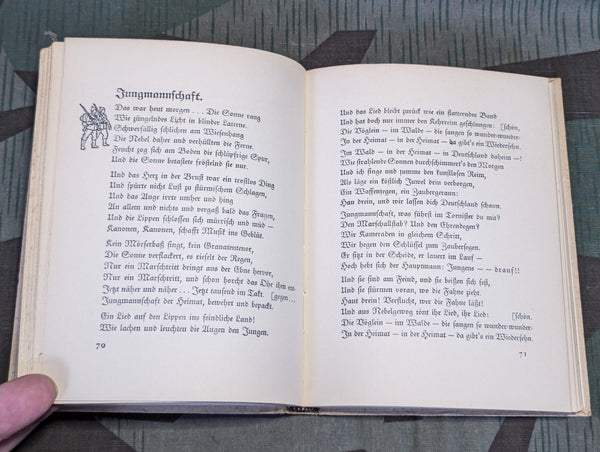 Jungmannschaft.
Das war heut morgen . . . Die Sonne rang
Wie züngelndes Licht in blinder Laterne.
Schwerfällig schlichen am Wiesenhang
Die Nebel daher und verhüllten die Ferne.
Feucht zog sich am Boden die schlüpfrige Spur,
Und die Sonne betastete fröstelnd sie nur.
Und das Herz in der Brust war ein trostlos Ding
Und spürte nicht Lust zu stürmischem Schlagen,
Und das Auge irrte umher und hing
An allem und nichts und vergaß bald das Fragen,
Und die Lippen schlossen sich mürrisch und müd —
Kanonen, Kanonen, schaffe Musik ins Geblüt.
Kein Mörserbaß singt, kein Granatentenor,
Die Sonne verflackert, es rieselt der Regen,
Nur ein Marschtritt dringt aus der Ebne hervor,
Nur ein Marschtritt, und schon horcht das Ohr ihm ent-
Jetzt näher und näher . . . Jetzt tausend im Takt. [gegen . . .
Jungmannschaft der Heimat, bewehrt und bepackt.
Ein Lied auf den Lippen ins feindliche Land!
Wie lachen und leuchten die Augen den Jungen.
70
Und das Lied bleibt zurück wie ein flatterndes Band
Und hat doch nur immer den Kehrreim geschlungen: [schön,
Die Vöglein — im Walde — die sangen so wunder-wunder-
In der Heimat — in der Heimat — da gibt's ein Wiedersehn.
Im Wald — in der Heimat — in Deutschland daheim —!
Wie strahlende Sonnen durchschimmert's den Morgen
Und ich singe und summe den kunstlosen Reim,
Als läge ein köstlich Juwel drin verborgen,
Ein Waffensegen, ein Zauberzeraun:
Han drein, und wie lassen dich Deutschland schaun.
Jungmannschaft, was führst im Tornister du mit?
Den Marschallstab? Und den Ehrendegen?
Wie Kameraden in gleichem Schritt,
Wir hegen den Schlüssel zum Zaubersegen.
Er sitzt in der Scheide, er lauert im Lauf —
Hoch hebt sich der Hauptmann: Jungens — — drauf!!
Und sie sind am Feind, und sie beißen sich fest,
Und sie stürmen voran, wo die Fahne zieht.
Haut drein! Verflucht, wer die Fahne läßt!
Und aus Nebelgewog tönt ihr Lied, ihr Lied: [schön.
Die Vöglein — im Walde — die sangen so wunder-wunder-
In der Heimat — in der Heimat — da gibt's ein Wiedersehn.
71